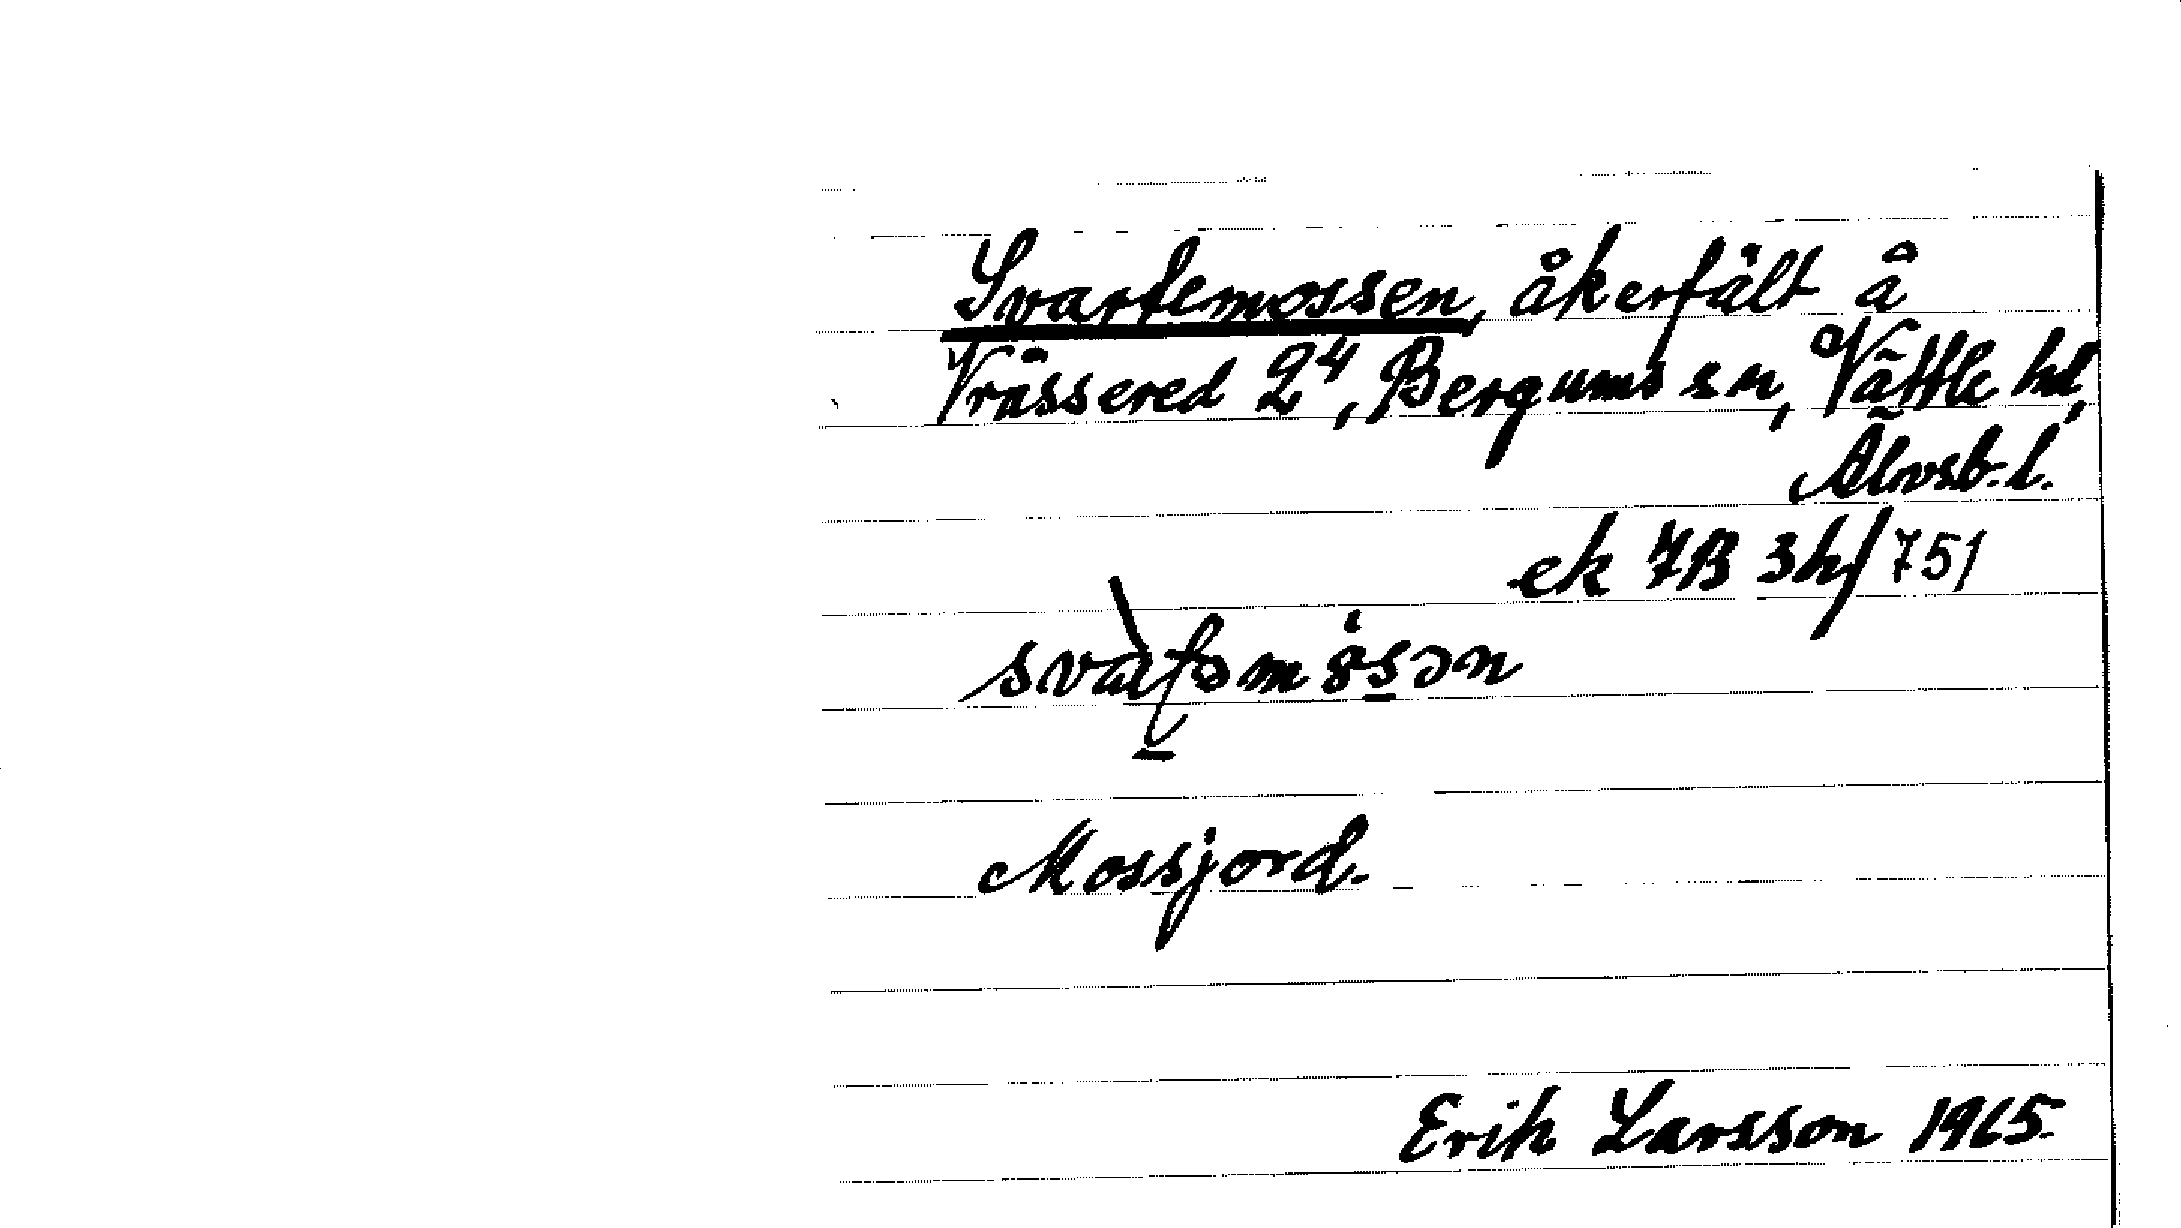 Svartemossen, åkerfält å
Vråssered 2⁴, Bergums sn, Vättle hd,
Älvsb. l.
ek 7B 3h/751
Mossjord.
Erik Larsson 1965.